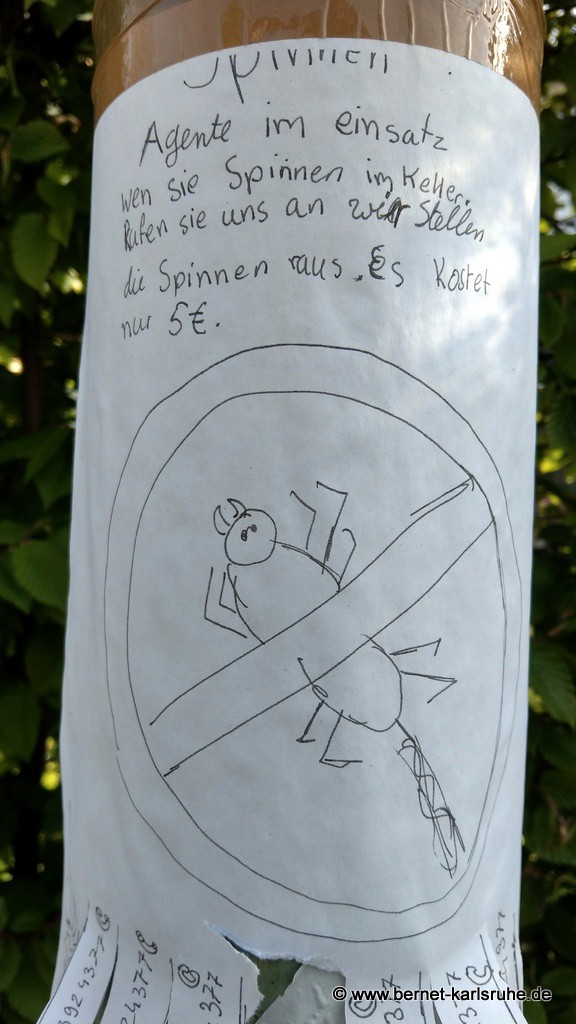 Spinnen
Agente im einsatz
wen sie Spinnen im Keller.
Rufen sie uns an wir Stellen
die Spinnen raus. Es Kostet
nur 5€.
© www.bernet-karlsruhe.de